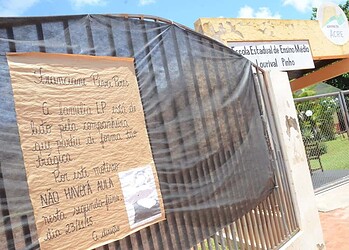 A família LP está de
luto pela companheira
que partiu de forma tão
trágica.
Por este motivo
NÃO HAVERÁ AULA
nesta segunda-feira,
dia 23/11/15
A direção
ACRE
Escola Estadual de Ensino Médio
Lourival Pinho